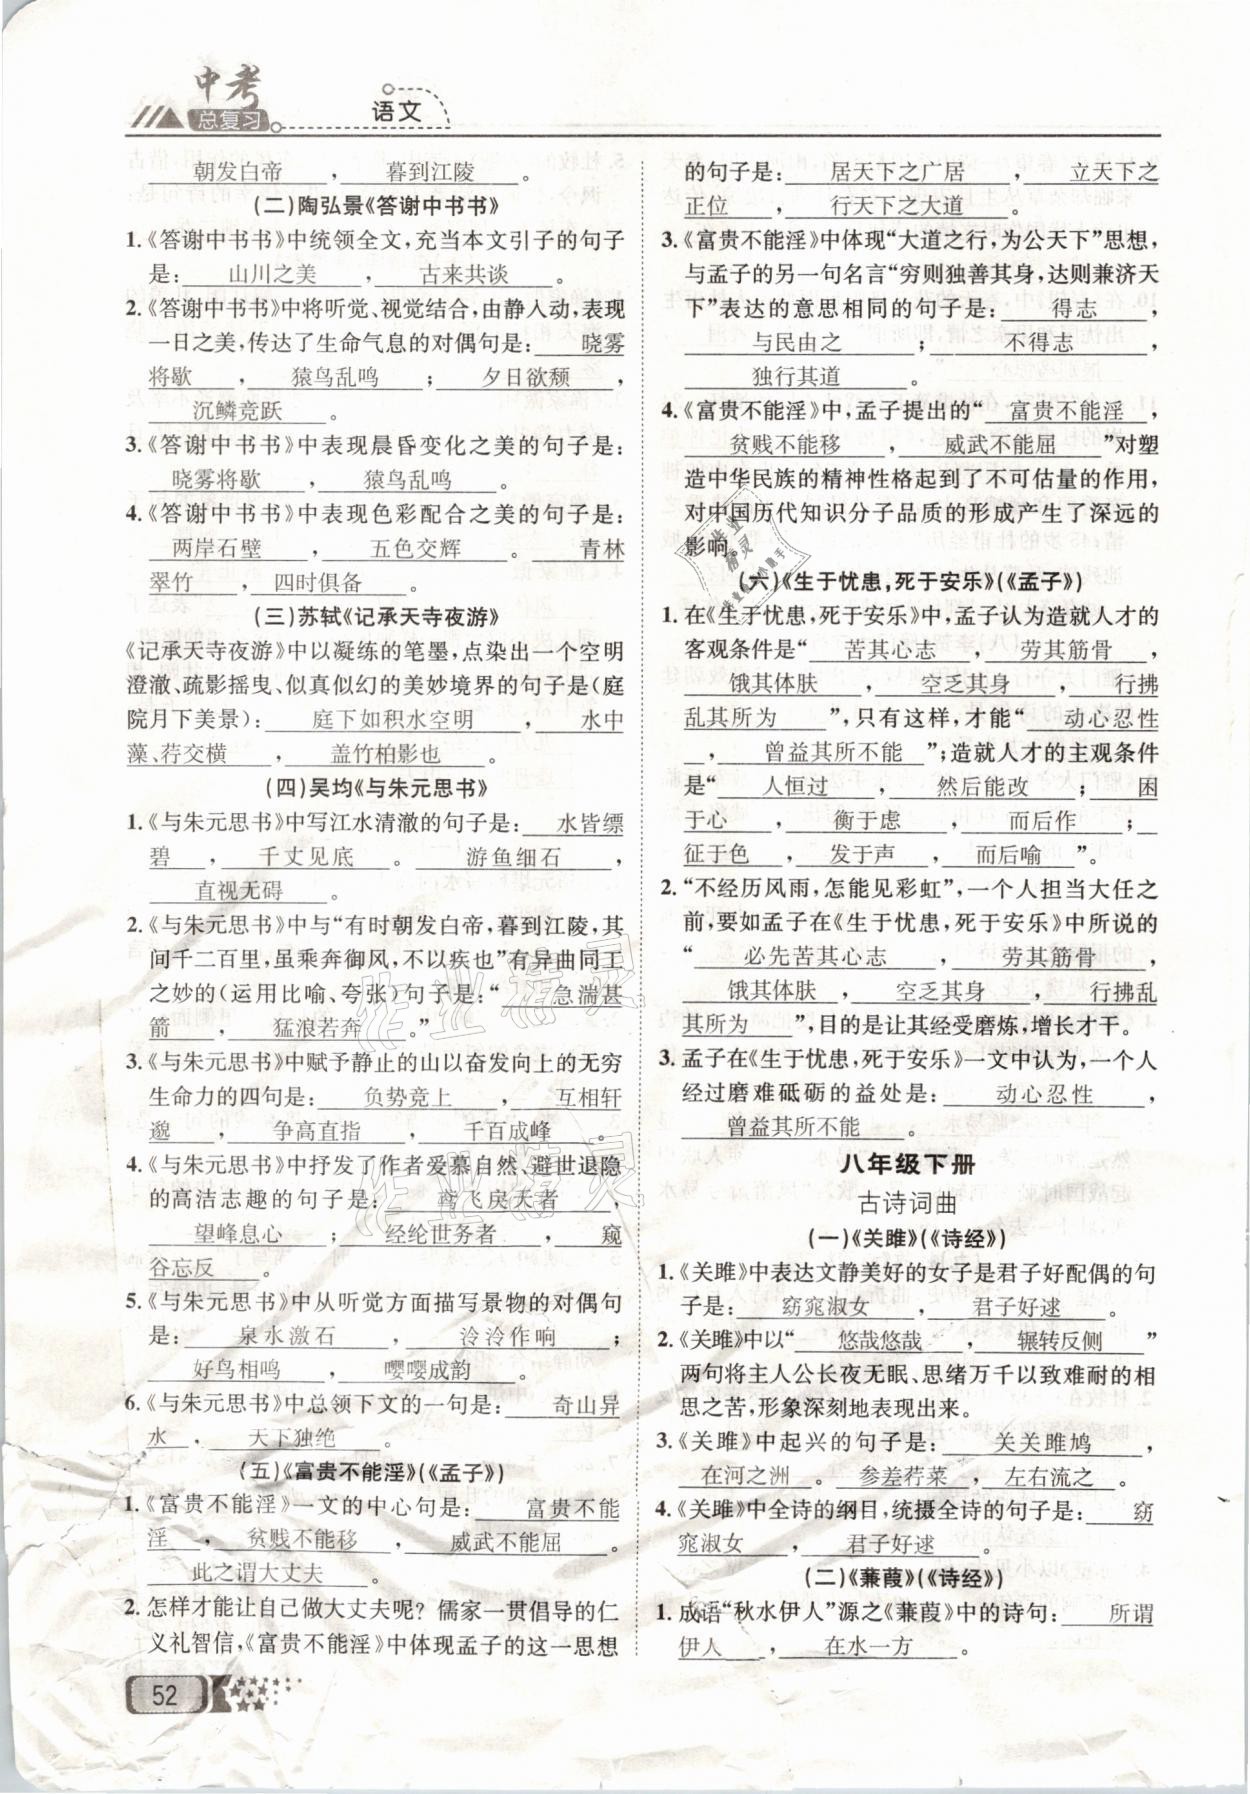 中考
总复习
语文
朝发白帝，暮到江陵。
(二)陶弘景《答谢中书书》
1.《答谢中书书》中统领全文，充当本文引子的句子
是：山川之美，古来共谈。
2.《答谢中书书》中将听觉、视觉结合，由静人动，表现
一日之美，传达了生命气息的对偶句是：晓雾
将歇，猿鸟乱鸣；夕日欲颓，
沉鳞竞跃。
3.《答谢中书书》中表现晨昏变化之美的句子是：
晓雾将歇，猿鸟乱鸣。
4.《答谢中书书》中表现色彩配合之美的句子是：
两岸石壁，五色交辉。青林
翠竹，四时俱备。
(三)苏轼《记承天寺夜游》
《记承天寺夜游》中以凝练的笔墨，点染出一个空明
澄澈、疏影摇曳、似真似幻的美妙境界的句子是(庭
院月下美景)：庭下如积水空明，水中
藻、荇交横，盖竹柏影也。
(四)吴均《与朱元思书》
1.《与朱元思书》中写江水清澈的句子是：水皆缥
碧，千丈见底。游鱼细石，
直视无碍。
2.《与朱元思书》中与“有时朝发白帝，暮到江陵，其
间千二百里，虽乘奔御风，不以疾也”有异曲同工
之妙的(运用比喻、夸张)句子是：“急湍甚
箭，猛浪若奔。”
3.《与朱元思书》中赋予静止的山以奋发向上的无穷
生命力的四句是：负势竞上，互相轩
邈，争高直指，千百成峰。
4.《与朱元思书》中抒发了作者爱慕自然、避世退隐
的高洁志趣的句子是：鸢飞戾天者，
望峰息心；经纶世务者，窥
谷忘反。
5.《与朱元思书》中从听觉方面描写景物的对偶句
是：泉水激石，泠泠作响；
好鸟相鸣，嘤嘤成韵。
6.《与朱元思书》中总领下文的一句是：奇山异
水，天下独绝。
(五)《富贵不能淫》(《孟子》)
1.《富贵不能淫》一文的中心句是：富贵不能
淫，贫贱不能移，威武不能屈。
此之谓大丈夫。
2.怎样才能让自己做大丈夫呢？儒家一贯倡导的仁
义礼智信，《富贵不能淫》中体现孟子的这一思想
52
的句子是：居天下之广居，立天下之
正位，行天下之大道。
3.《富贵不能淫》中体现“大道之行，为公天下”思想，
与孟子的另一句名言“穷则独善其身，达则兼济天
下”表达的意思相同的句子是：得志，
与民由之；不得志，
独行其道。
4.《富贵不能淫》中，孟子提出的“富贵不能淫，
贫贱不能移，威武不能屈”对塑
造中华民族的精神性格起到了不可估量的作用，
对中国历代知识分子品质的形成产生了深远的
影响。
(六)《生于忧患，死于安乐》(《孟子》)
1.在《生于忧患，死于安乐》中，孟子认为造就人才的
客观条件是“苦其心志，劳其筋骨，
饿其体肤，空乏其身，行拂
乱其所为”，只有这样，才能“动心忍性
，曾益其所不能”；造就人才的主观条件
是“人恒过，然后能改；困
于心，衡于虑，而后作；
征于色，发于声，而后喻”。
2.“不经历风雨，怎能见彩虹”，一个人担当大任之
前，要如孟子在《生于忧患，死于安乐》中所说的
“必先苦其心志，劳其筋骨，
饿其体肤，空乏其身，行拂乱
其所为”，目的是让其经受磨炼，增长才干。
3.孟子在《生于忧患，死于安乐》一文中认为，一个人
经过磨难砥砺的益处是：动心忍性，
曾益其所不能。
八年级下册
古诗词曲
(一)《关雎》(《诗经》)
1.《关雎》中表达文静美好的女子是君子好配偶的句
子是：窈窕淑女，君子好逑。
2.《关雎》中以“悠哉悠哉，辗转反侧”
两句将主人公长夜无眠、思绪万千以致难耐的相
思之苦，形象深刻地表现出来。
3.《关雎》中起兴的句子是：关关雎鸠，
在河之洲。参差荇菜，左右流之。
4.《关雎》中全诗的纲目，统摄全诗的句子是：窈
窕淑女，君子好逑。
(二)《蒹葭》(《诗经》)
1.成语“秋水伊人”源之《蒹葭》中的诗句：所谓
伊人，在水一方。
作业精灵
作业精灵